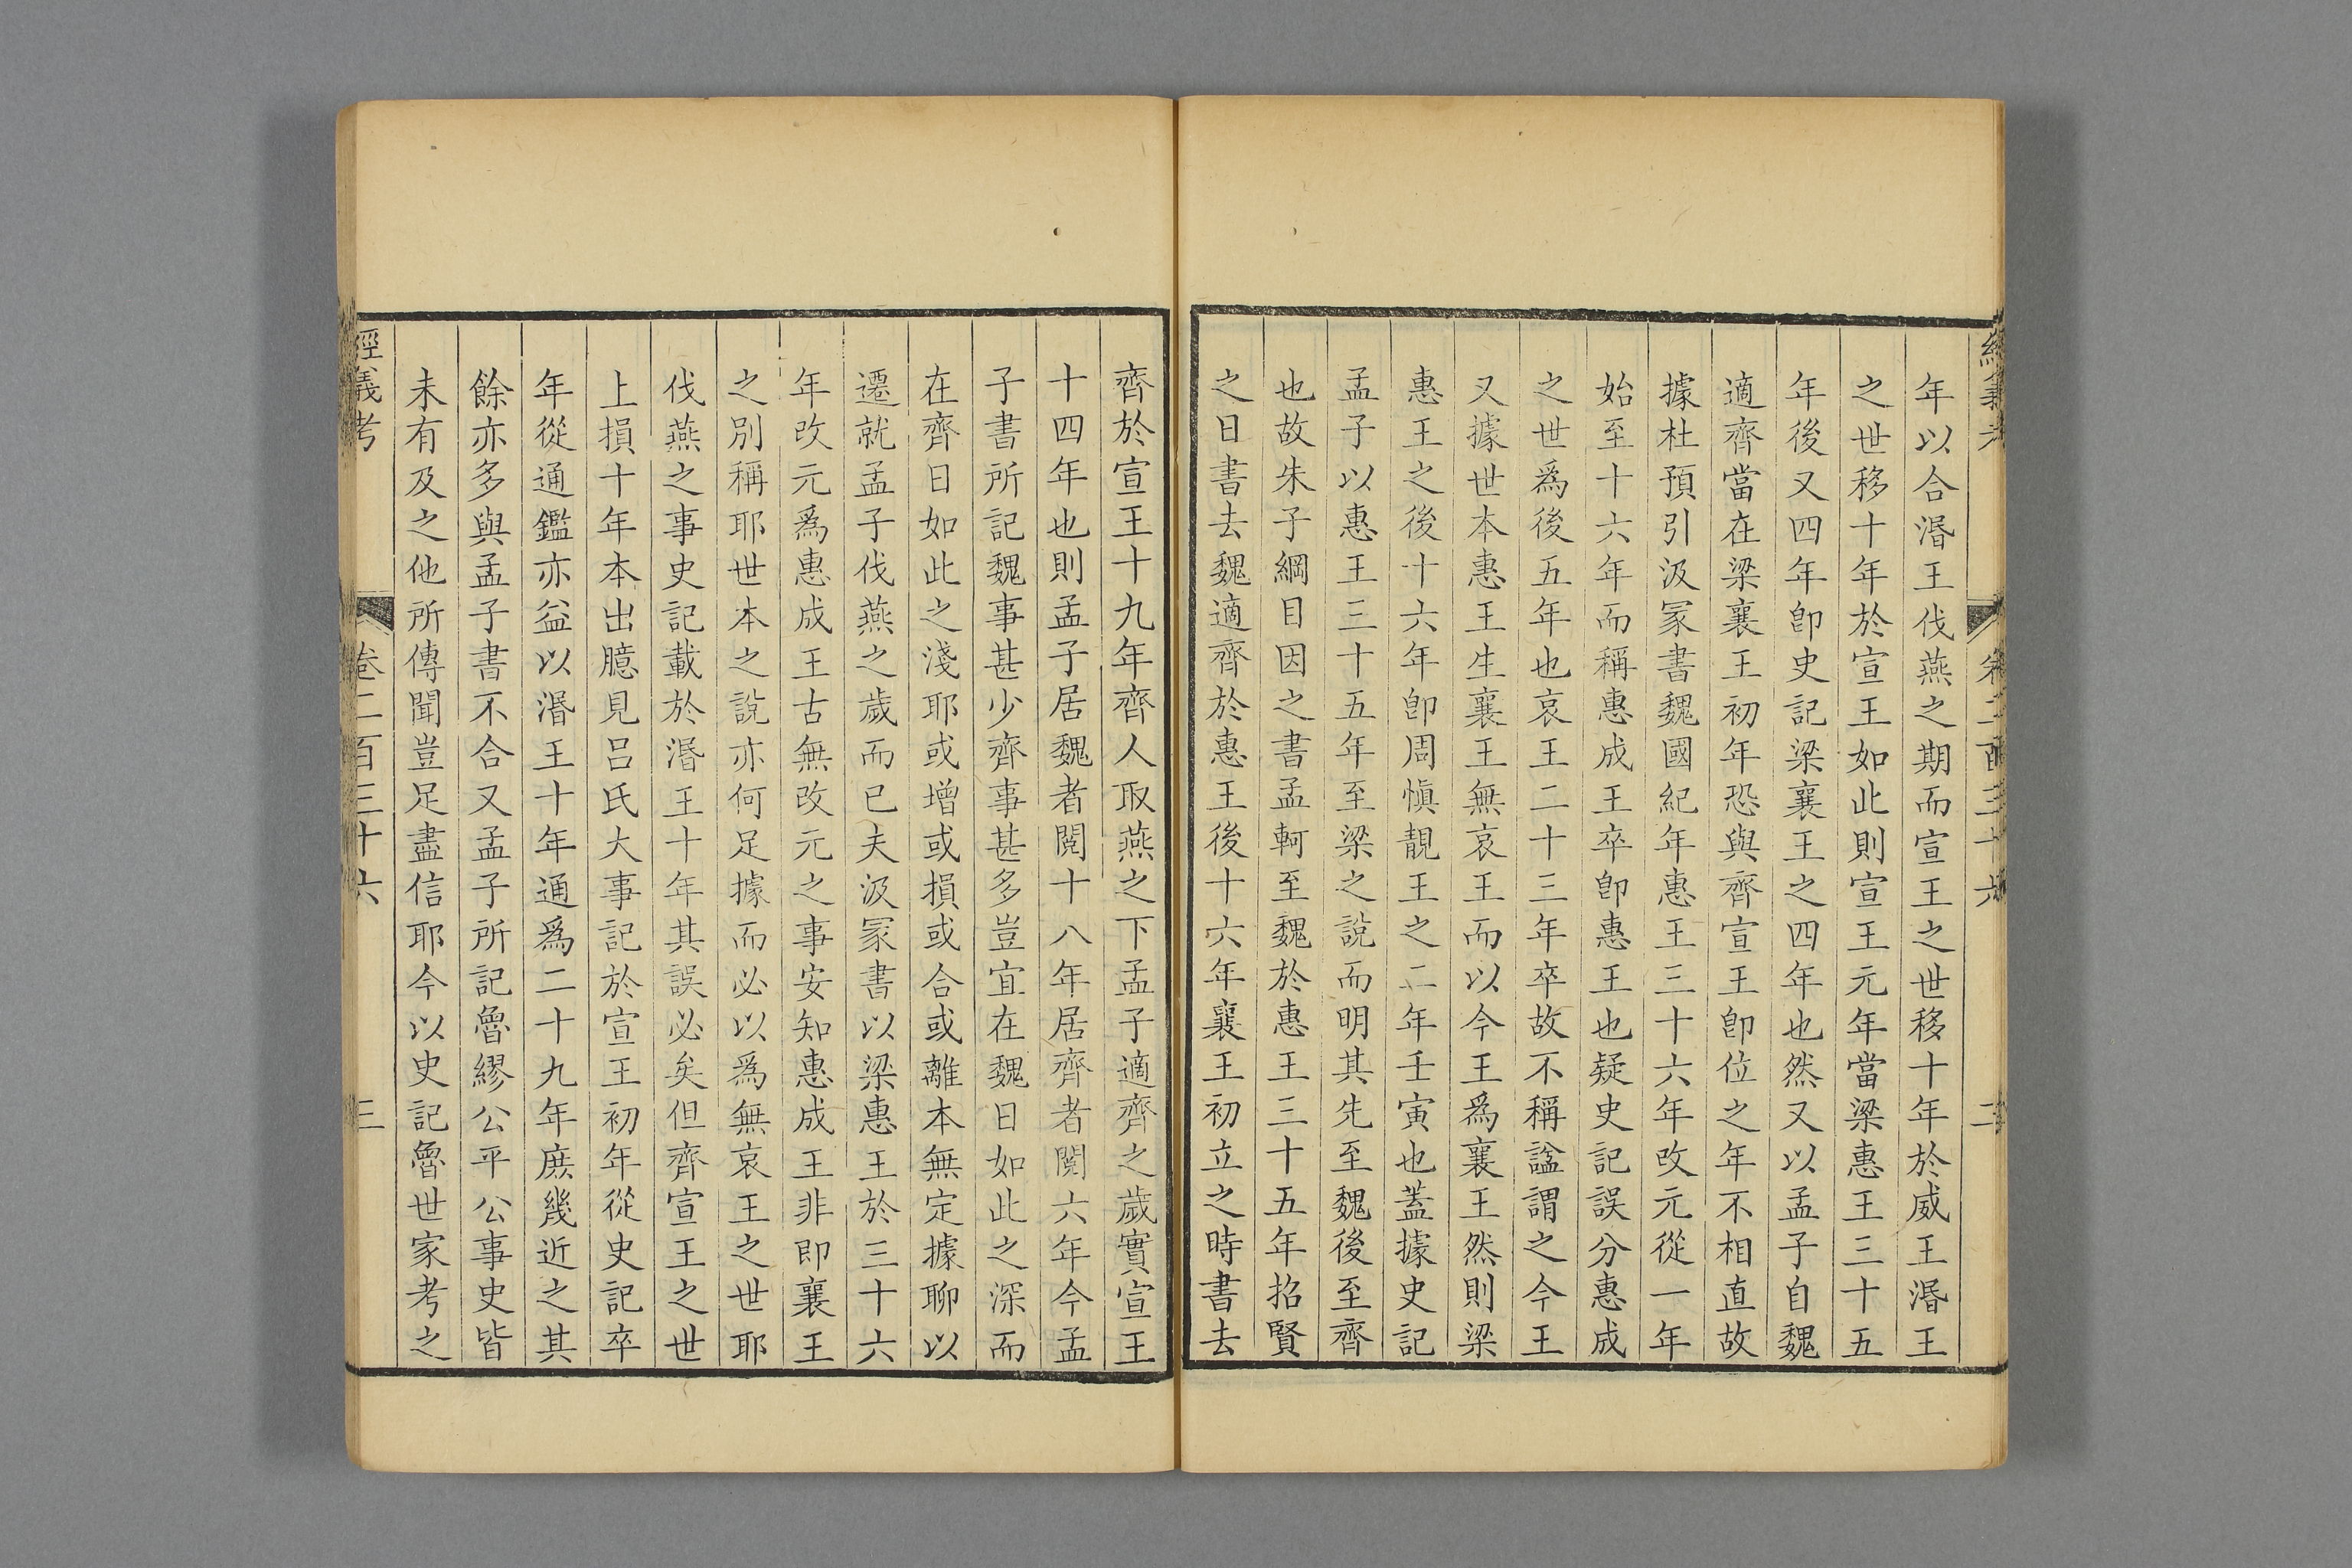 年以合湣王伐燕之期而宣王之世移十年於威王湣王
之世移十年於宣王如此則宣王元年當梁惠王三十五
年後又四年卽史記梁襄王之四年也然又以孟子自魏
適齊當在梁襄王初年恐與齊宣王卽位之年不相直故
據杜預引汲冢書魏國紀年惠王三十六年改元從一年
始至十六年而稱惠成王卒卽惠王也疑史記誤分惠成
之世爲後五年也哀王二十三年卒故不稱諡謂之今王
又據世本惠王生襄王無哀王而以今王爲襄王然則梁
惠王之後十六年卽周愼靚王之二年壬寅也蓋據史記
孟子以惠王三十五年至梁之說而明其先至魏後至齊
也故朱子綱目因之書孟軻至魏於惠王三十五年招賢
之日書去魏適齊於惠王後十六年襄王初立之時書去
齊於宣王十九年齊人取燕之下孟子適齊之歲實宣王
十四年也則孟子居魏者閱十八年居齊者閱六年今孟
子書所記魏事甚少齊事甚多豈宜在魏日如此之深而
在齊日如此之淺耶或增或損或合或離本無定據聊以
遷就孟子伐燕之歲而已夫汲冢書以梁惠王於三十六
年改元爲惠成王古無改元之事安知惠成王非即襄王
之別稱耶世本之說亦何足據而必以爲無哀王之世耶
伐燕之事史記載於湣王十年其誤必矣但齊宣王之世
上損十年本出臆見呂氏大事記於宣王初年從史記卒
年從通鑑亦益以湣王十年通爲二十九年庶幾近之其
餘亦多與孟子書不合又孟子所記魯繆公平公事史皆
未有及之他所傳聞豈足盡信耶今以史記魯世家考之
經義考 卷二百三十六 三